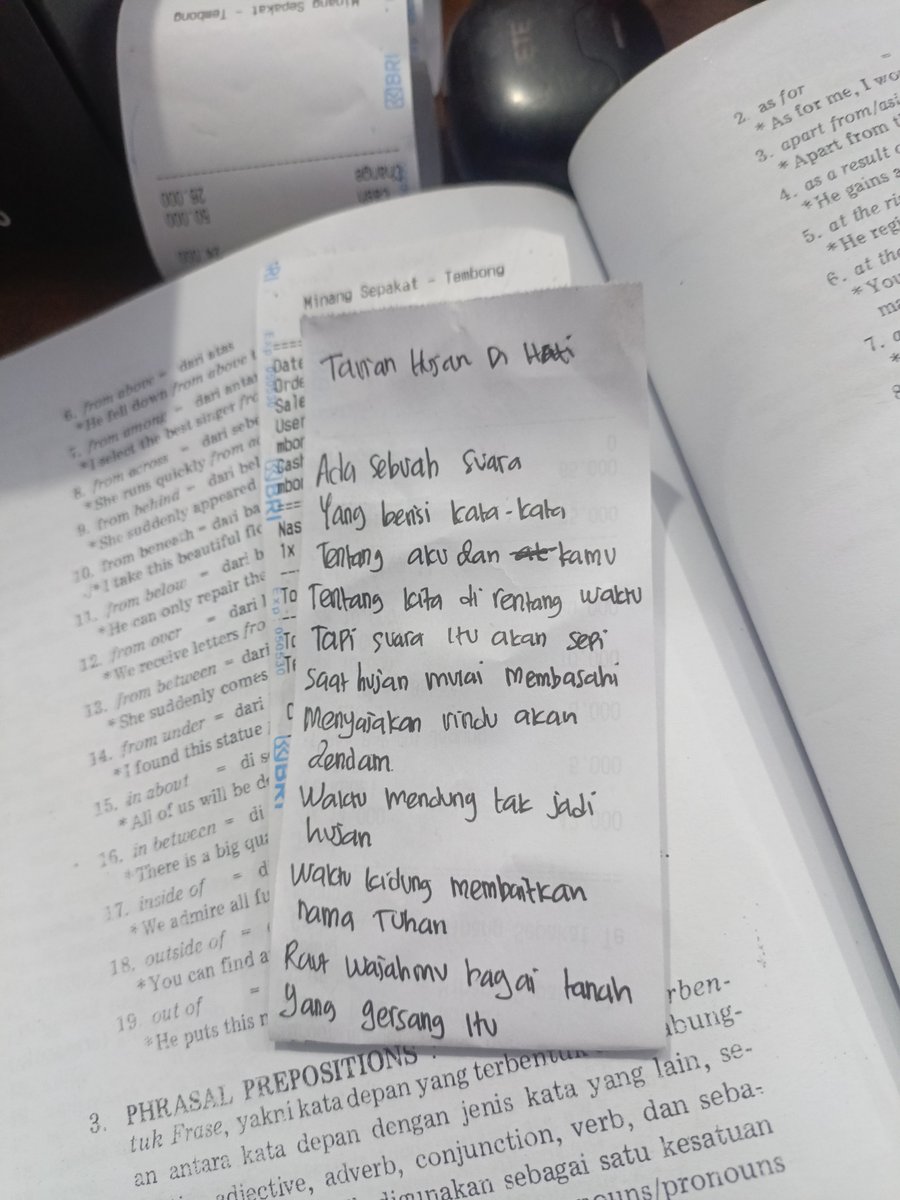 Minang Sepakat - Tembong
BRI
Change
26.000
50.000
ETE
2. as for
* As for me, I
3. apart from/
* Apart from
4. as a result
* He gains
5. at the
* He
6. at the
* You
7.
6. from above = dari atas
* He fell down from above
7. from among = dari
* I select the best singer
8. from across = dari
* She runs quickly from
9. from behind = dari
* She suddenly appeared
10. from beneath = dari
* I take this beautiful
11. from below = dari
* He can only repair the
12. from over = dari
* We receive letters
13. from between = dari
* She suddenly comes
14. from under = dari
* I found this statue
15. in about = di
* All of us will be
16. in between = di
* There is a big
17. inside of =
* We admire all
18. outside of =
* You can find a
19. out of =
* He puts this
Minang Sepakat - Tembong
Date
User
1x
BRI
Exp 050530
BRI
Tarian Hujan Di Hati
Ada sebuah suara
Yang berisi kata-kata
Tentang aku dan kamu
Tentang kita di rentang waktu
Tapi suara itu akan sepi
Saat hujan mulai membasahi
Menyajakan rindu akan
dendam.
Waktu mendung tak jadi
hujan
Waktu kidung membaitkan
nama Tuhan
Raut wajahmu bagai tanah
yang gersang itu
3. PHRASAL PREPOSITIONS
tuk Frase, yakni kata depan yang terbentuk
an antara kata depan dengan jenis kata yang lain, se-
adjective, adverb, conjunction, verb, dan seba-
digunakan sebagai satu kesatuan
nouns/pronouns